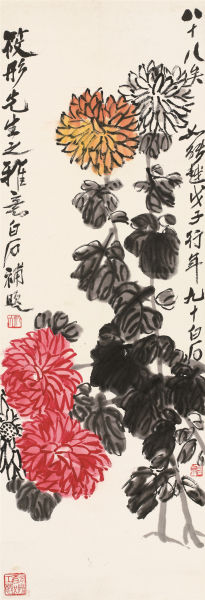 八十八矣
戊子行年九十白石
筱彤先生之雅意白石補款